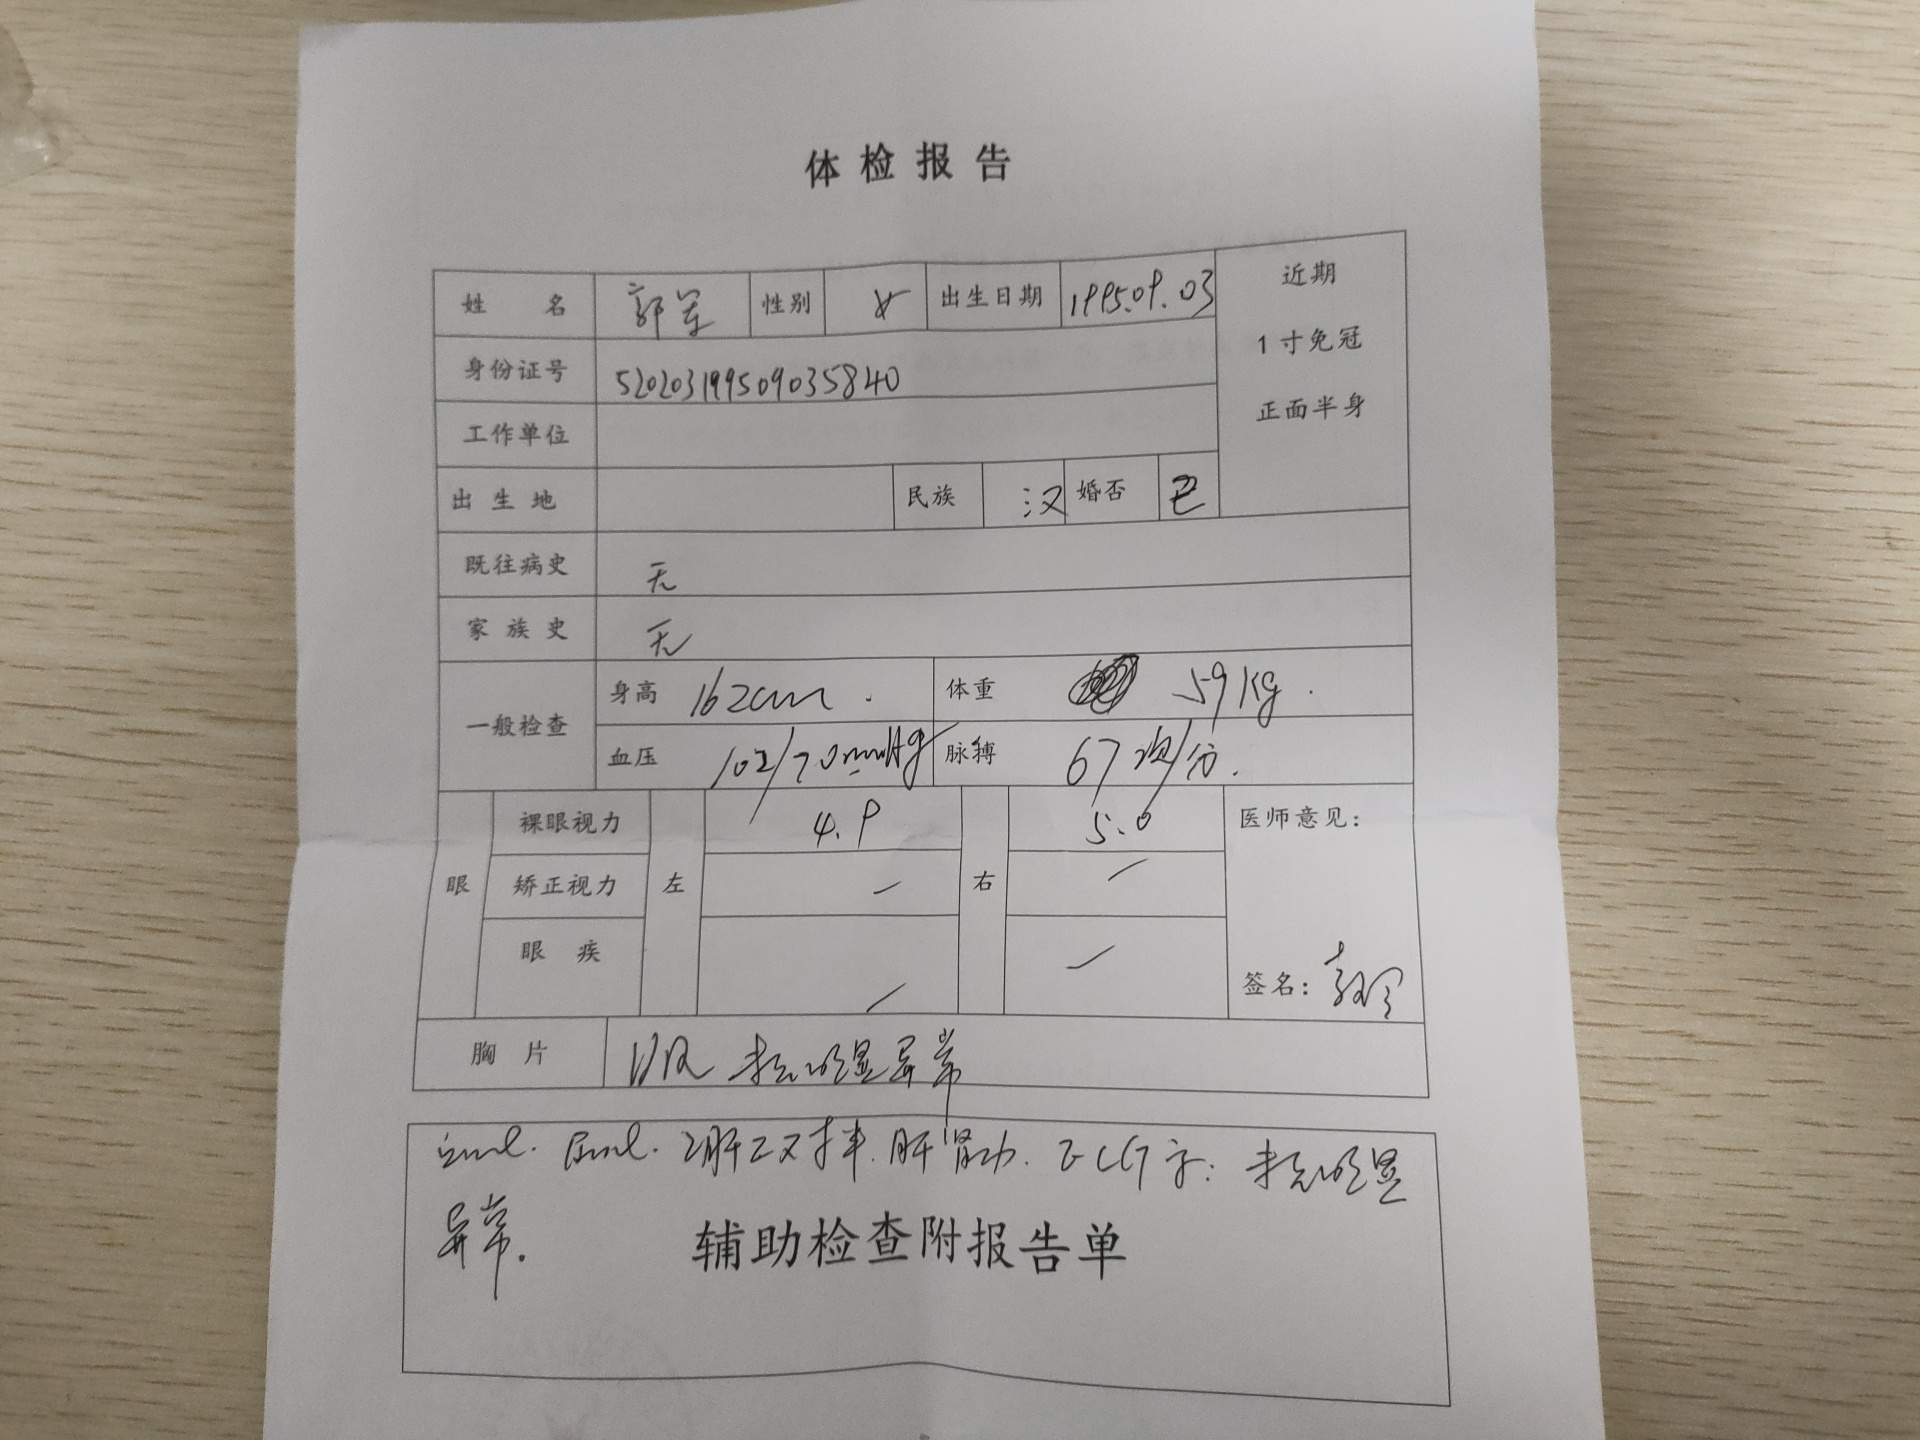 体检报告
姓 名 郭 性别 女 出生日期 1995.09.03 近期
1寸免冠
正面半身
身份证号 520203199509035840
工作单位
出生地 民族 汉 婚否 已
既往病史 无
家族史 无
一般检查 身高 162cm. 体重 59kg.
血压 102/70mmHg 脉搏 67次/分.
眼 裸眼视力 左 4.9 右 5.0 医师意见：
矫正视力 — —
眼疾 — — 签名：
胸片 DR 未见明显异常
乙肝二对半. 肝肾功. ECG示: 未见明显
异常.
辅助检查附报告单